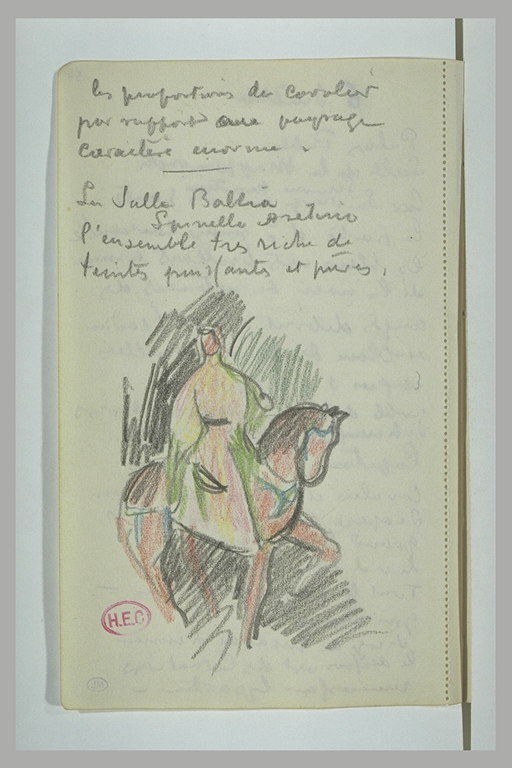 les proportions du cavalier
par rapport au paysage
caractère énorme.
La Salla Ballia
Spinello Aretino
l'ensemble très riche de
teintes puissantes et pures.
H.E.C